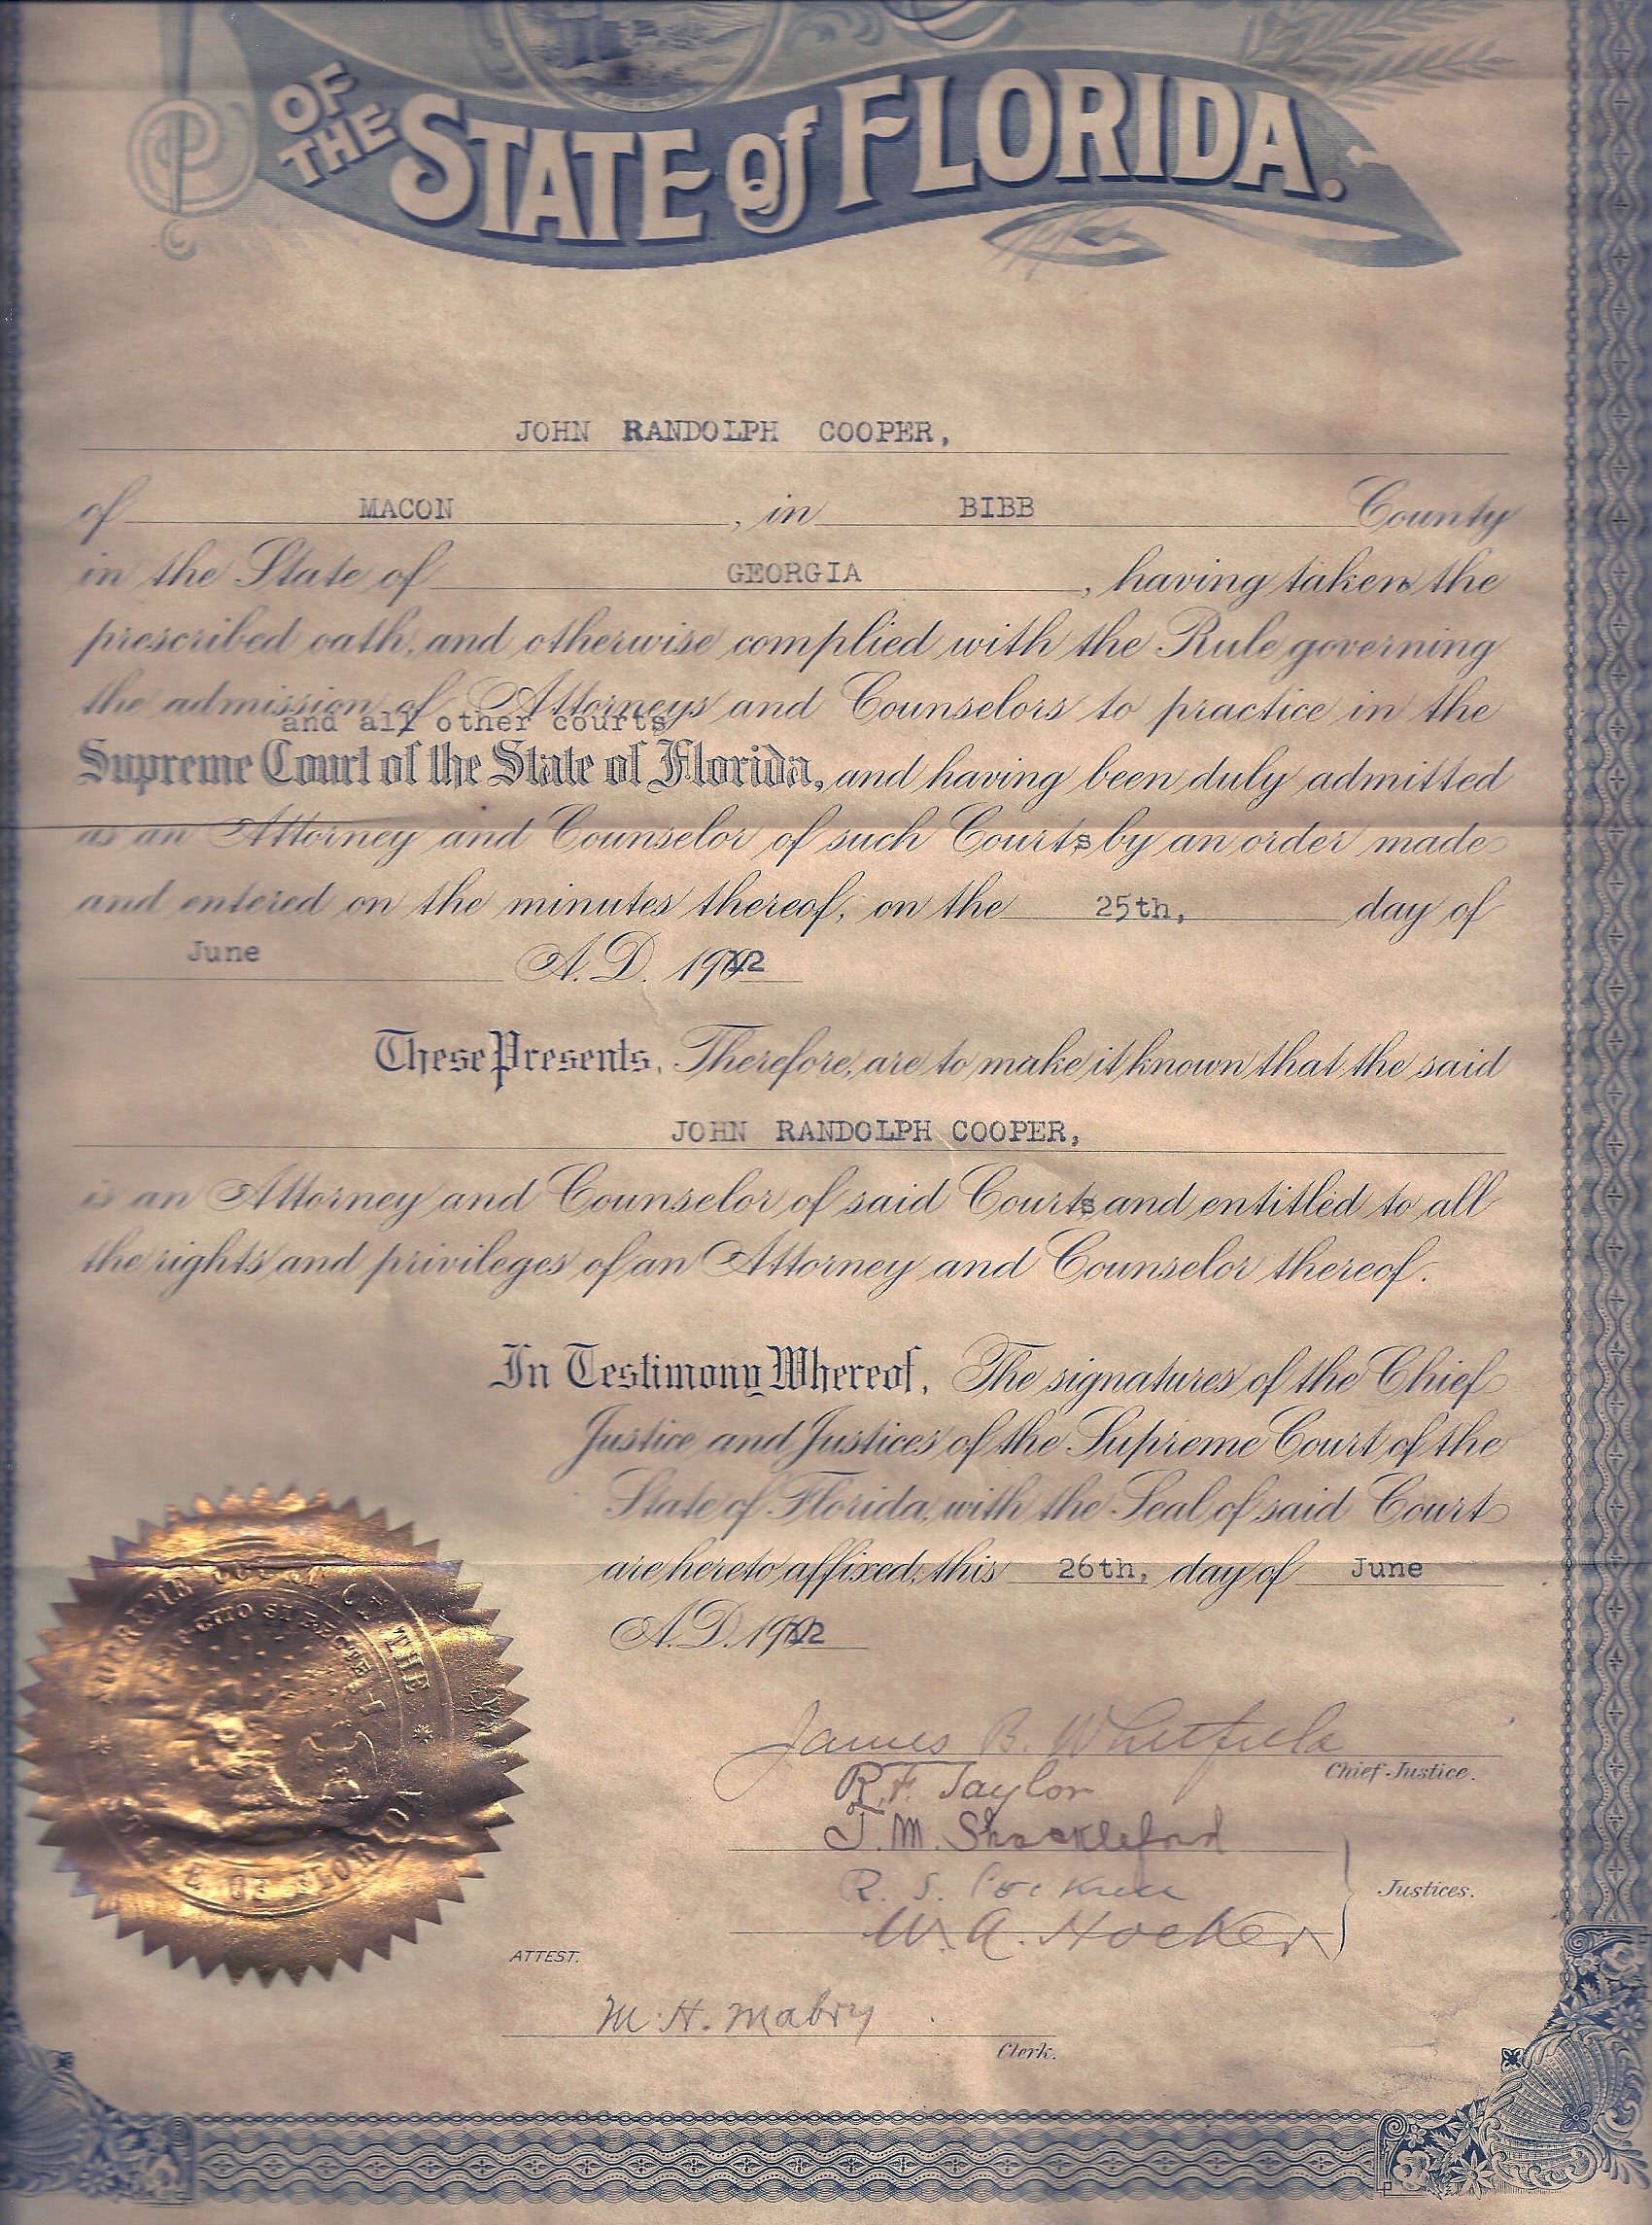 OF THE STATE of FLORIDA.
JOHN RANDOLPH COOPER,
of MACON, in BIBB County
in the State of GEORGIA, having taken the
prescribed oath, and otherwise complied with the Rule governing
the admission of Attorneys and Counselors to practice in the
and all other courts
Supreme Court of the State of Florida, and having been duly admitted
as an Attorney and Counselor of such Courts by an order made
and entered on the minutes thereof, on the 25th, day of
June A.D. 1912
These Presents, Therefore, are to make it known that the said
JOHN RANDOLPH COOPER,
is an Attorney and Counselor of said Courts and entitled to all
the rights and privileges of an Attorney and Counselor thereof.
In Testimony Whereof, The signatures of the Chief
Justice and Justices of the Supreme Court of the
State of Florida, with the Seal of said Court
are hereto affixed, this 26th, day of June
A.D. 1912
SUPREME COURT OF THE
STATE OF FLORIDA
James B. Whitfield
Chief Justice.
R.F. Taylor
T. M. Shackleford
R. S. Cockrell
Justices.
W. A. Hocker
ATTEST.
M. H. Mabry
Clerk.